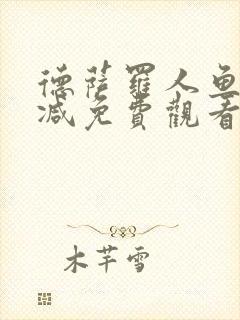 德薩羅人魚
減免費觀看
木芊雪